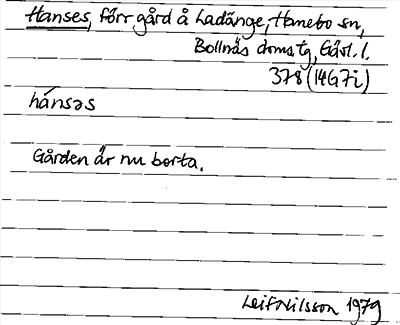 Hanses, förr gård å Ladänge, Hanebo sn,
Bollnäs doms.tg, Gävl. l.
378 (14G7i)
hánsəs
Gården är nu borta.
Leif Nilsson 1979